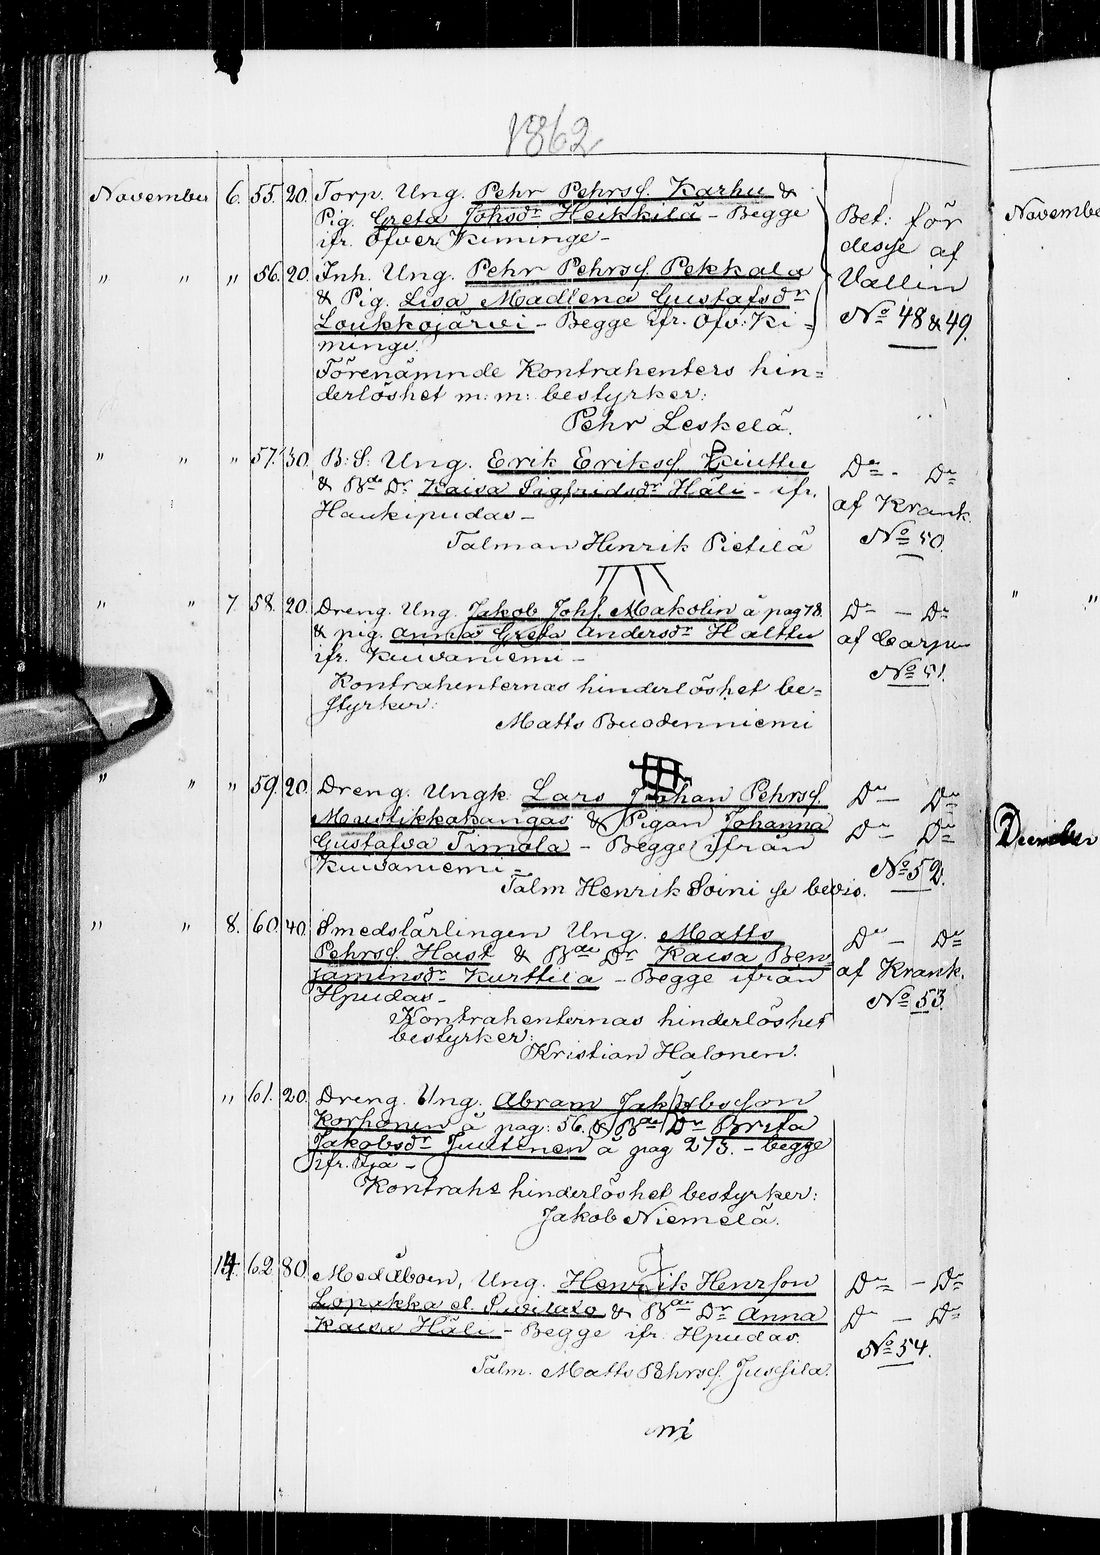 1862
November 6. 55. 20. Torp. Ung. Pehr Pehrss. Karhu &
Pig. Greta Johsdr Heikkilä - Begge
ifr. Öfver Kiminge -
Bet: för
desse af
Vallin
No 48 & 49.
November
" " " 56. 20. Inh. Ung. Pehr Pehrss. Pekkala
& Pig. Lisa Madlena Gustafsdr
Loukkojärvi - Begge ifr. Öfv: Ki=
minge.
Förenämnde Kontrahenters hin=
derlöshet m: m: bestyrker:
Pehr Leskelä.
" " " 57. 30. B: S: Ung. Erik Erikss Kiuttu
& Bde Dr Kaisa Sigfridsdr Häli - ifr.
Haukipudas -
Talman Henrik Pietilä
Do - Do
af Krank.
No 50.
" " 7. 58. 20. Dreng. Ung. Jakob Johs. Makolin à pag 78.
& pig. Anna Greta Andersdr Halttu
ifr. Kuivaniemi -
Kontrahenternas hinderlöshet be=
styrker:
Matts Buodenniemi
Do - Do
af Carpe
No 51.
" " " 59. 20. Dreng. Ungk. Lars Johan Pehrss.
Mustikkakangas & Pigan Johanna
Gustafva Timola - Begge ifrån
Kuivaniemi -
Talm Henrik Soini se bevis.
Do - Do
Do - Do
No 52.
December
" " 8. 60. 40. Smedslärlingen Ung. Matts
Pehrss. Hast & Bde Dr Kaisa Ben=
jaminsdr Kurttila - Begge ifrån
Hpudas -
Kontrahenternas hinderlöshet
bestyrker:
Kristian Halonen.
Do - Do
af Krank.
No 53.
" 61. 20. Dreng. Ung. Abram Jakobsson
Korhonen à pag: 56. & Bde Dr Brita
Jakobsdr Juutinen à pag 275. - begge
ifr. Ijå -
Kontrahs hinderlöshet bestyrker:
Jakob Niemelä.
14. 62. 80. Medåboen, Ung. Henrik Henrsson
Lopakka el. & Bde Dr Anna
Kaisa Häli - Begge ifr. Hpudas.
Talm. Matts Pehrss. Jussila.
Do - Do
Do - Do
No 54.